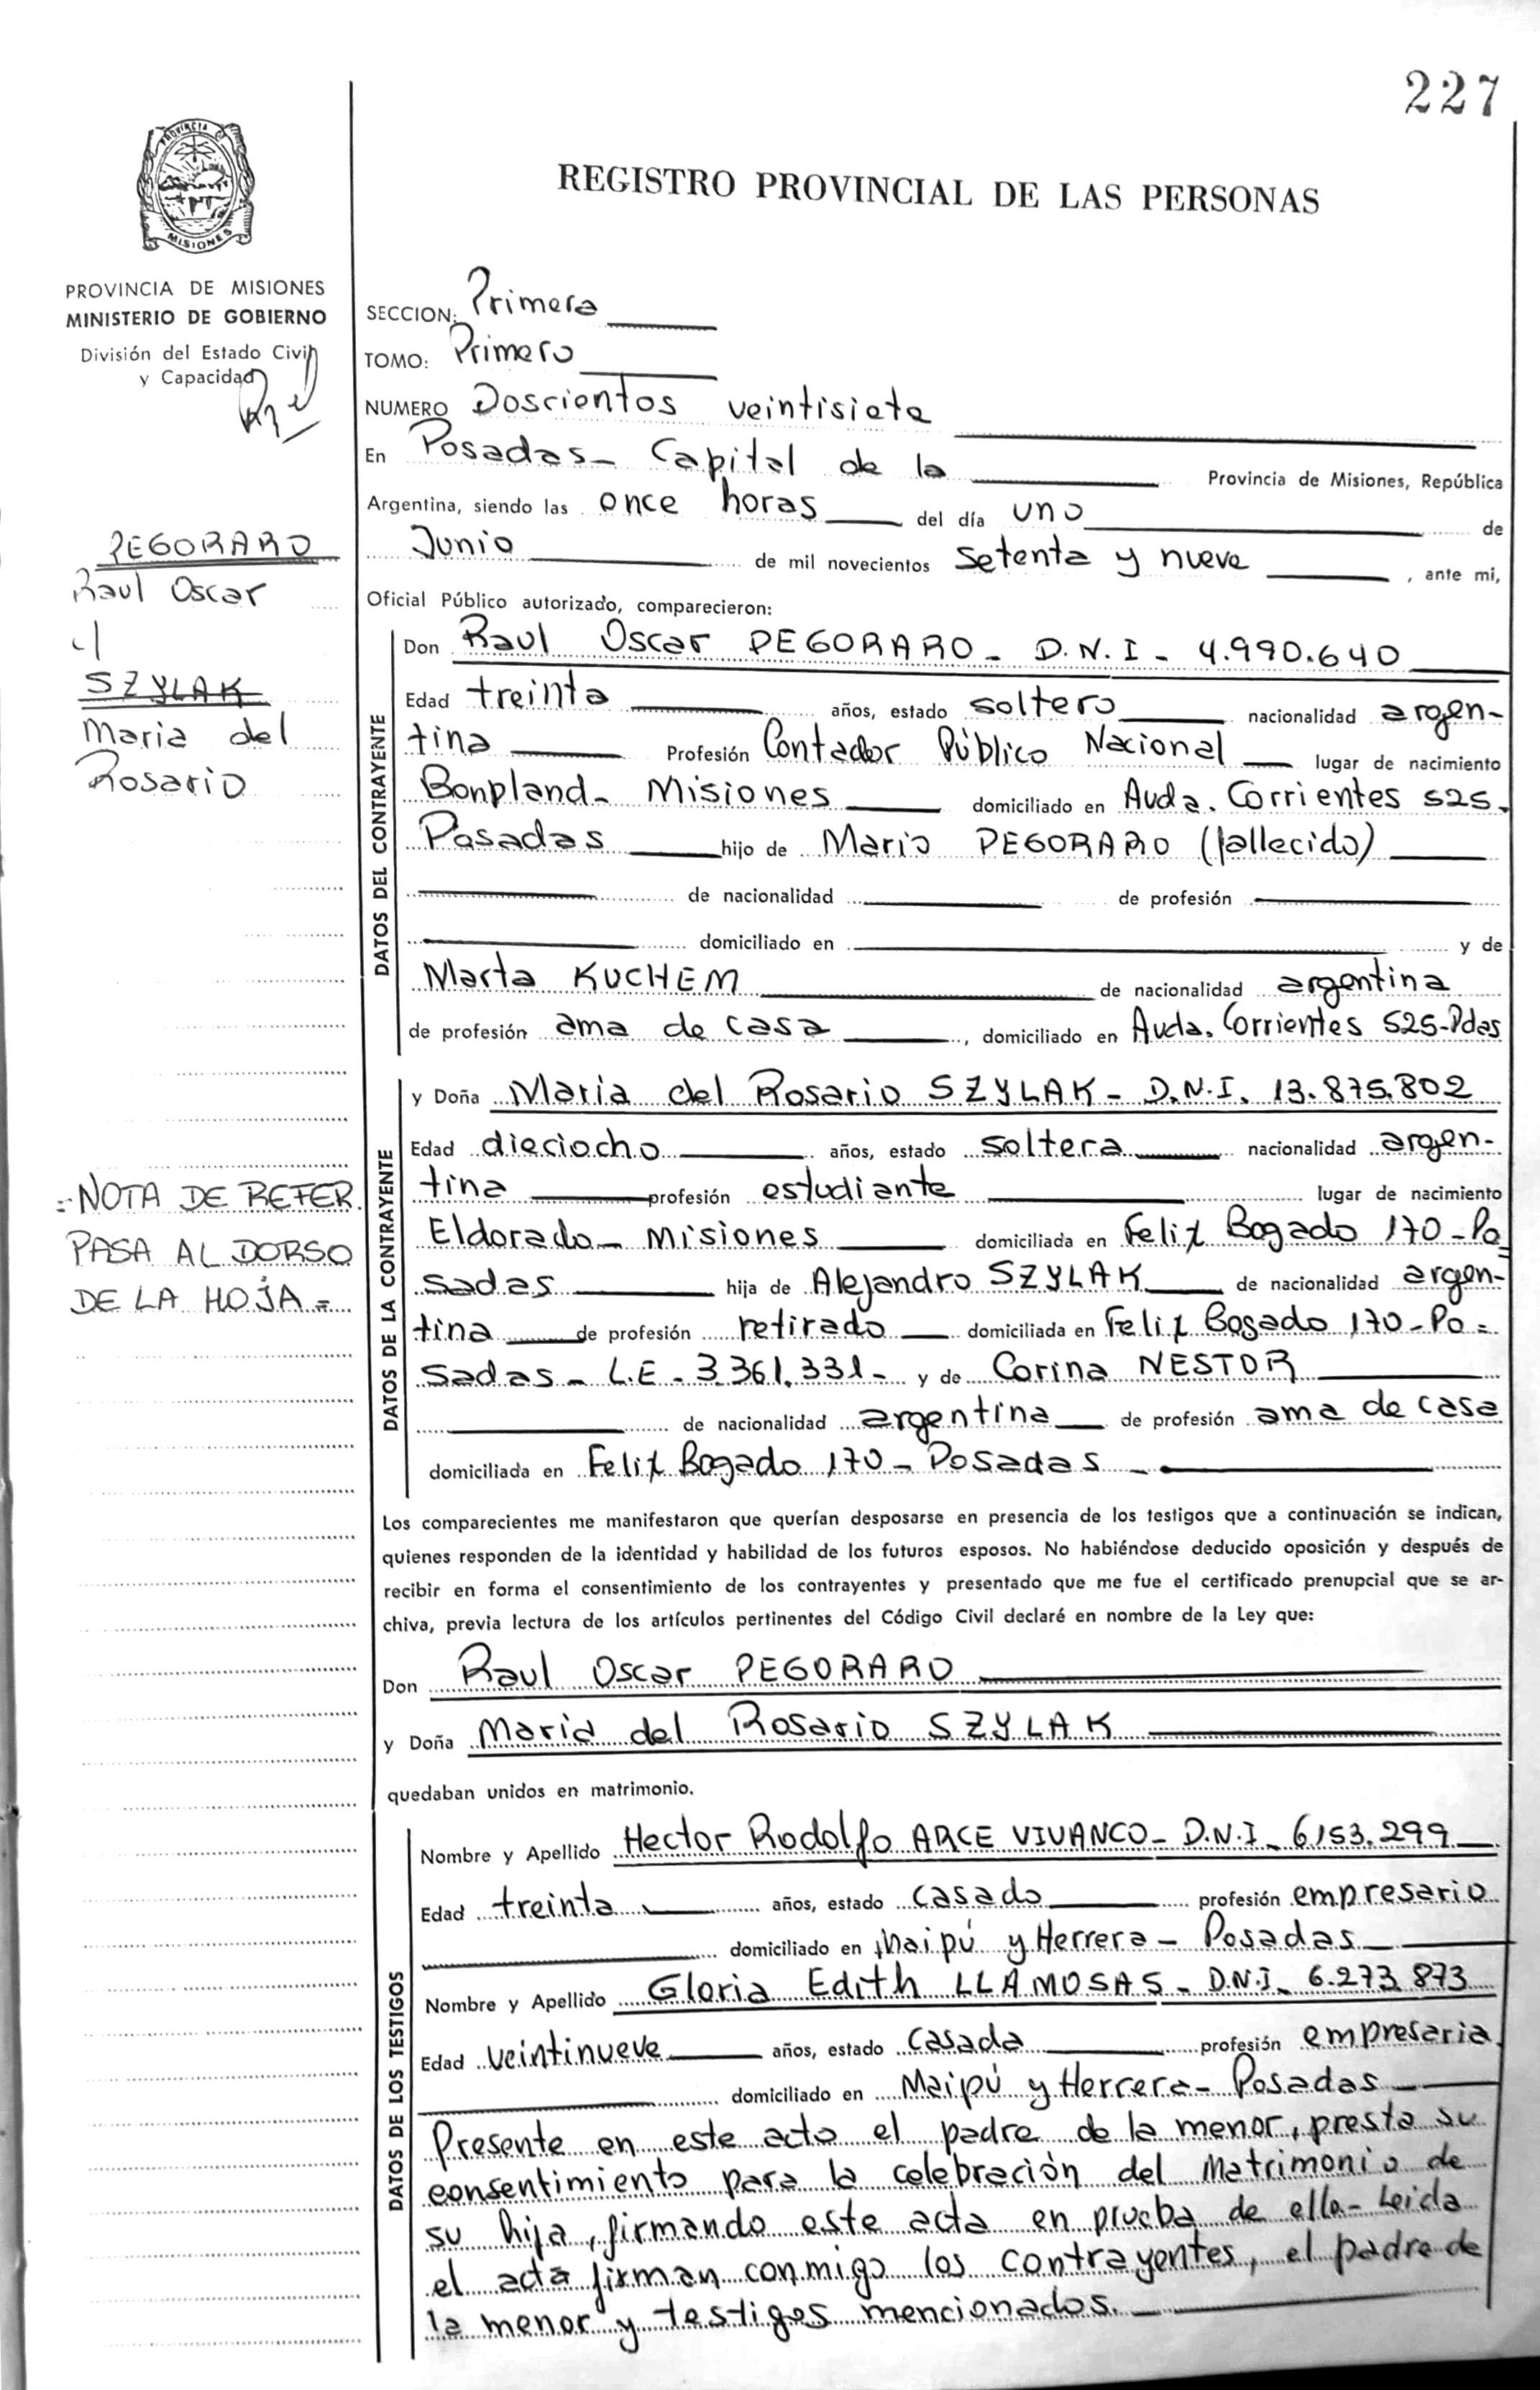 227
PROVINCIA DE
MISIONES
REGISTRO PROVINCIAL DE LAS PERSONAS
PROVINCIA DE MISIONES
MINISTERIO DE GOBIERNO
División del Estado Civil
y Capacidad
PEGORARO
Raul Oscar
c/
SZYLAK
Maria del
Rosario
=NOTA DE REFER.
PASA AL DORSO
DE LA HOJA=
SECCION: Primera
TOMO: Primero
NUMERO Doscientos veintisiete
En Posadas- Capital de la Provincia de Misiones, República
Argentina, siendo las once horas del día uno de
Junio de mil novecientos setenta y nueve, ante mi,
Oficial Público autorizado, comparecieron:
DATOS DEL CONTRAYENTE
Don Raul Oscar PEGORARO- D.N.I- 4.990.640
Edad treinta años, estado soltero nacionalidad argen-
tina Profesión Contador Público Nacional lugar de nacimiento
Bonpland- Misiones domiciliado en Avda. Corrientes 525-
Posadas hijo de Mario PEGORARO (fallecido)
de nacionalidad de profesión
domiciliado en y de
Marta KUCHEM de nacionalidad argentina
de profesión ama de casa, domiciliado en Avda. Corrientes 525-Pdas
DATOS DE LA CONTRAYENTE
y Doña Maria del Rosario SZYLAK- D.N.I. 13.875.802
Edad dieciocho años, estado soltera nacionalidad argen-
tina profesión estudiante lugar de nacimiento
Eldorado- Misiones domiciliada en Felix Bogado 170-Po=
sadas hija de Alejandro SZYLAK de nacionalidad argen-
tina de profesión retirado domiciliada en Felix Bogado 170-Po=
sadas- L.E- 3.361.331- y de Corina NESTOR
de nacionalidad argentina de profesión ama de casa
domiciliada en Felix Bogado 170- Posadas-
Los comparecientes me manifestaron que querían desposarse en presencia de los testigos que a continuación se indican,
quienes responden de la identidad y habilidad de los futuros esposos. No habiéndose deducido oposición y después de
recibir en forma el consentimiento de los contrayentes y presentado que me fue el certificado prenupcial que se ar-
chiva, previa lectura de los artículos pertinentes del Código Civil declaré en nombre de la Ley que:
Don Raul Oscar PEGORARO
y Doña Maria del Rosario SZYLAK
quedaban unidos en matrimonio.
DATOS DE LOS TESTIGOS
Nombre y Apellido Hector Rodolfo ARCE VIVANCO- D.N.I- 6.153.299
Edad treinta años, estado casado profesión empresario
domiciliado en Maipú y Herrera- Posadas
Nombre y Apellido Gloria Edith LLAMOSAS- D.N.I- 6.273.873
Edad veintinueve años, estado casada profesión empresaria
domiciliado en Maipú y Herrera- Posadas
Presente en este acto el padre de la menor, presta su
consentimiento para la celebración del Matrimonio de
su hija, firmando este acta en prueba de ello- Leida
el acta firman conmigo los contrayentes, el padre de
la menor y testigos mencionados.